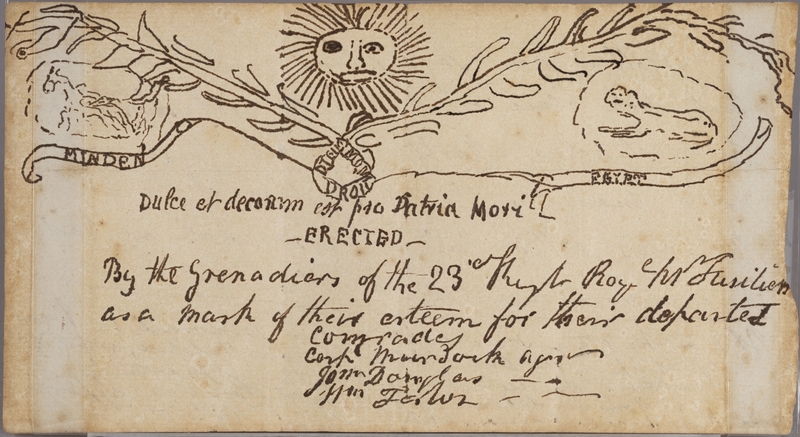 MINDEN
DIEU MON
DROIT
EGYPT
Dulce et decorum est pro Patria Mori
— ERECTED —
By the Grenadiers of the 23rd Regt Royl Wh Fusiliers
as a mark of their esteem for their departed
Comrades
Corpl Murdock aged
John Douglas — —
Wm